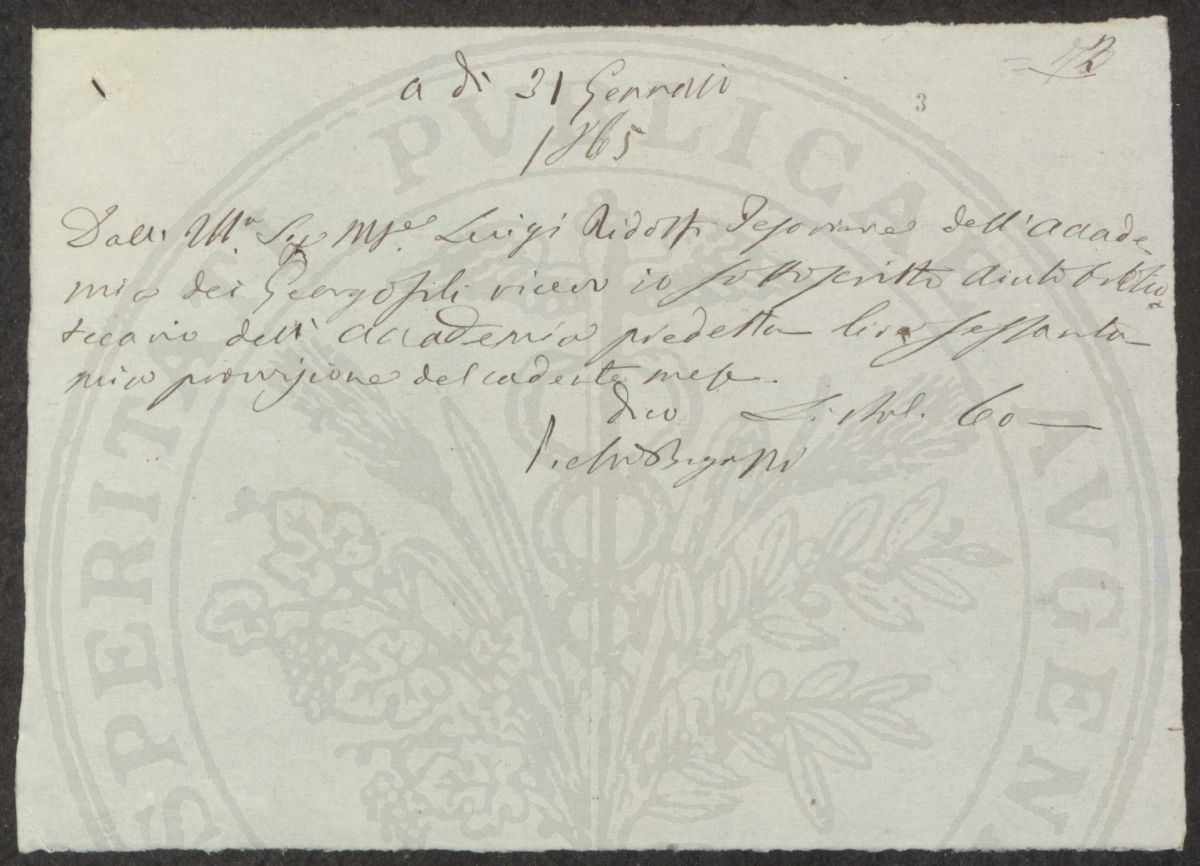 a dì 31 Gennaio
3
1865
Dall' Ill.o Sig. M.se Luigi Ridolfi Tesoriere dell' Accade-
mia dei Georgofili ricevo io sottoscritto aiuto biblio
tecario dell' Accademia predetta lire sessanta
mia provvisione del cadente mese.
dico Li. 60 —
Pietro Bigazzi
PUBLICAE
PROSPERITATI AUGEN